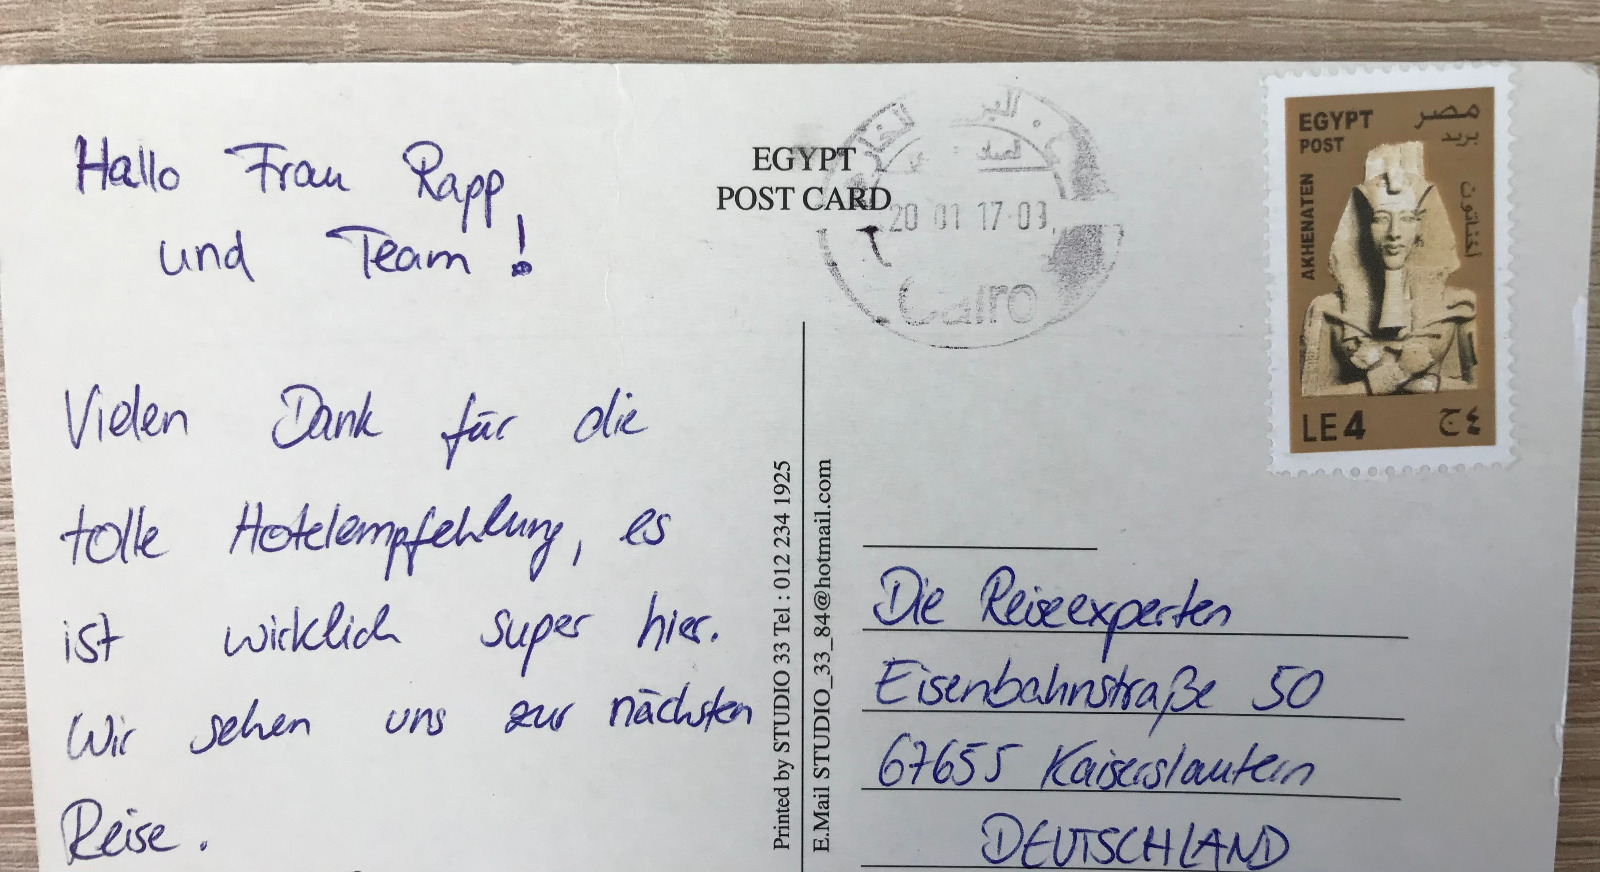 Hallo Frau Rapp
und Team!
Vielen Dank für die
tolle Hotelempfehlung, es
ist wirklich super hier.
Wir sehen uns zur nächsten
Reise.
EGYPT
POST CARD
20 01 17-09
Cairo
EGYPT
POST
مصر
AKHENATEN
اخناتون
LE 4
٤ ج
Printed by STUDIO 33 Tel : 012 234 1925
E.Mail STUDIO_33_84@hotmail.com
Die Reiseexperten
Eisenbahnstraße 50
67655 Kaiserslautern
DEUTSCHLAND